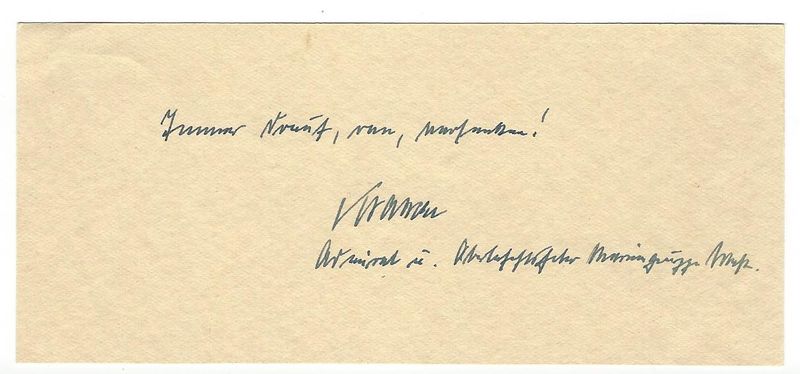 Immer drauf, ran, versenken!
Krancke
Admiral u. Oberbefehlshaber Marinegruppe West.